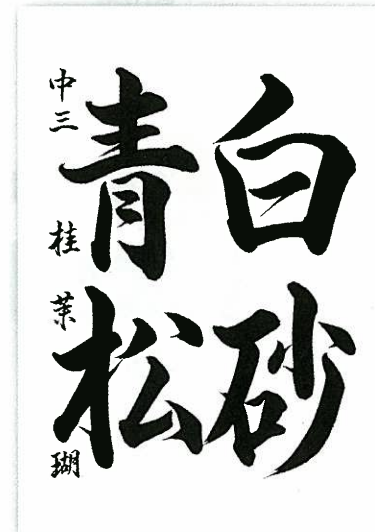 白砂
青松
中三 桂 茉瑚